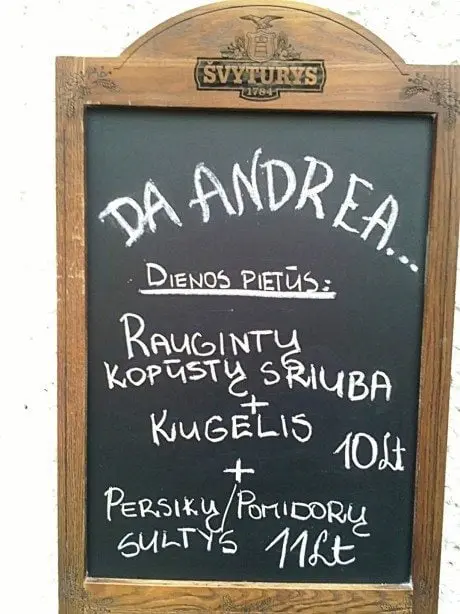 ŠVYTURYS
1784
DA ANDREA...
DIENOS PIETŪS:
RAUGINTŲ
KOPŪSTŲ SRIUBA
+
KUGELIS 10Lt
+
PERSIKŲ/POMIDORŲ
SULTYS 11Lt